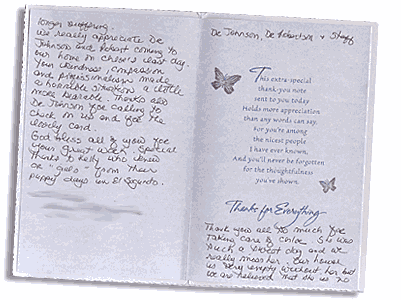 longer suffering.
We really appreciate Dr.
Johnson and Robert coming to
our home on Chloe's last day.
Your kindness, compassion
and professionalism made
a horrible situation a little
more bearable. Thanks also
Dr Johnson for calling to
check in on us and for the
lovely card.
God bless all of you for
your great work. Special
thanks to Kelly who knew
our "girls" from their
puppy days in El Segundo.
Dr Johnson, Dr Robertson & Staff
This extra-special
thank-you note
sent to you today
Holds more appreciation
than any words can say,
For you're among
the nicest people
I have ever known,
And you'll never be forgotten
for the thoughtfulness
you've shown.
Thanks for Everything
Thank you so much for
taking care of Chloe. She was
such a sweet dog and we
really miss her. Our house
is very empty without her but
we are relieved that she is no